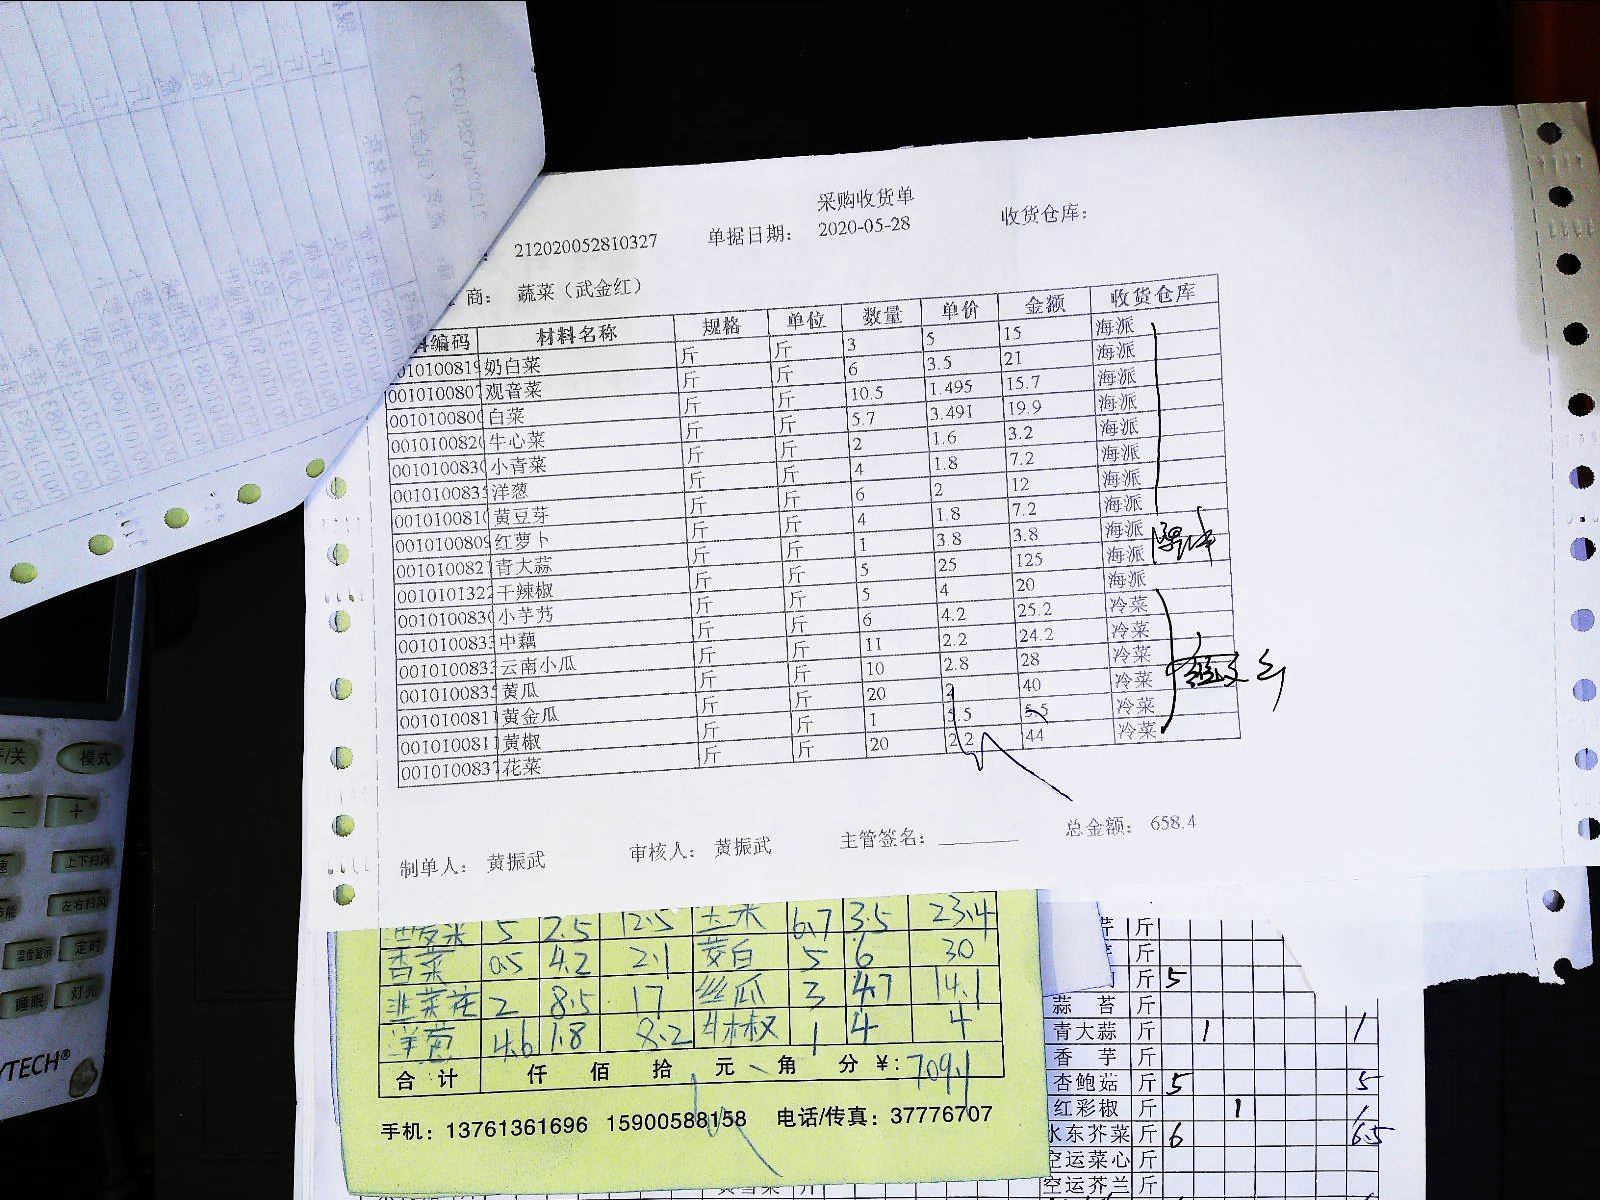 采购收货单
212020052810327 单据日期： 2020-05-28 收货仓库：
商： 蔬菜（武金红）
编码 材料名称 规格 单位 数量 单价 金额 收货仓库
010100819 奶白菜 斤 斤 3 5 15 海派
0010100807 观音菜 斤 斤 6 3.5 21 海派
001010080 白菜 斤 斤 10.5 1.495 15.7 海派
001010082 牛心菜 斤 斤 5.7 3.491 19.9 海派
001010083 小青菜 斤 斤 2 1.6 3.2 海派
001010083 洋葱 斤 斤 4 1.8 7.2 海派
001010081 黄豆芽 斤 斤 6 2 12 海派
001010080 红萝卜 斤 斤 4 1.8 7.2 海派
001010082 青大蒜 斤 斤 1 3.8 3.8 海派
001010132 干辣椒 斤 斤 5 25 125 海派
001010083 小芋艿 斤 斤 5 4 20 海派
001010083 中藕 斤 斤 6 4.2 25.2 冷菜
001010083 云南小瓜 斤 斤 11 2.2 24.2 冷菜
001010083 黄瓜 斤 斤 10 2.8 28 冷菜
001010081 黄金瓜 斤 斤 20 2 40 冷菜
001010081 黄椒 斤 斤 1 5.5 5.5 冷菜
001010083 花菜 斤 斤 20 2.2 44 冷菜
制单人： 黄振武 审核人： 黄振武 主管签名： 总金额： 658.4
5 2.5 12.5 玉米 6.7 3.5 23.4
香菜 0.5 4.2 2.1 茭白 5 6 30
韭菜花 2 8.5 17 丝瓜 3 4.7 14.1
洋葱 4.6 1.8 8.2 1 4 4
合计 仟 佰 拾 元 角 分 ¥: 709.1
手机：13761361696 15900588158 电话/传真：37776707
斤
斤
斤 5
蒜苔 斤
青大蒜 斤 1 1
香芋 斤
杏鲍菇 斤 5 5
红彩椒 斤 1
水东芥菜 斤 6 6.5
空运菜心 斤
空运芥兰 斤
开/关 模式
－ ＋
上下扫风
左右扫风
温度显示 定时
睡眠 灯光
YTECH®